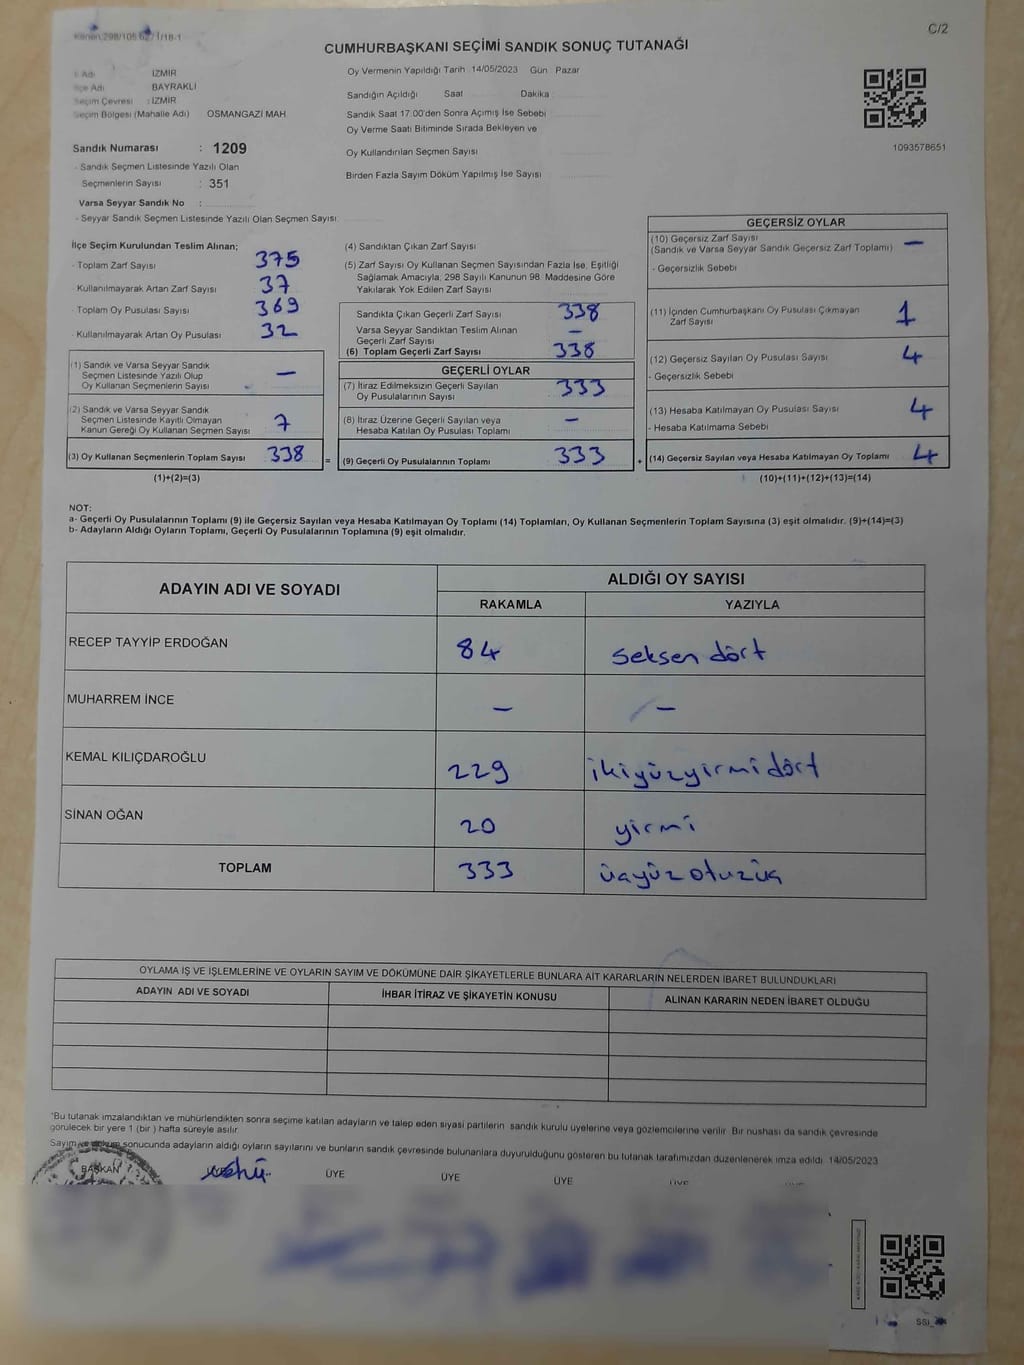 Kanun 298/105.62/1/18-1
C/2
CUMHURBAŞKANI SEÇİMİ SANDIK SONUÇ TUTANAĞI
İl Adı : İZMİR
İlçe Adı : BAYRAKLI
Seçim Çevresi : İZMİR
Seçim Bölgesi (Mahalle Adı) OSMANGAZİ MAH
Oy Vermenin Yapıldığı Tarih 14/05/2023 Gün Pazar
Sandığın Açıldığı Saat Dakika
Sandık Saat 17:00'den Sonra Açılmış İse Sebebi
Oy Verme Saati Bitiminde Sırada Bekleyen ve
Oy Kullandırılan Seçmen Sayısı
Birden Fazla Sayım Döküm Yapılmış İse Sayısı
1093578651
Sandık Numarası : 1209
- Sandık Seçmen Listesinde Yazılı Olan
Seçmenlerin Sayısı : 351
Varsa Seyyar Sandık No :
- Seyyar Sandık Seçmen Listesinde Yazılı Olan Seçmen Sayısı
İlçe Seçim Kurulundan Teslim Alınan;
- Toplam Zarf Sayısı 375
- Kullanılmayarak Artan Zarf Sayısı 37
- Toplam Oy Pusulası Sayısı 369
- Kullanılmayarak Artan Oy Pusulası 32
(1) Sandık ve Varsa Seyyar Sandık
Seçmen Listesinde Yazılı Olup
Oy Kullanan Seçmenlerin Sayısı —
(2) Sandık ve Varsa Seyyar Sandık
Seçmen Listesinde Kayıtlı Olmayan
Kanun Gereği Oy Kullanan Seçmen Sayısı 7
(3) Oy Kullanan Seçmenlerin Toplam Sayısı 338 =
(1)+(2)=(3)
(4) Sandıktan Çıkan Zarf Sayısı
(5) Zarf Sayısı Oy Kullanan Seçmen Sayısından Fazla İse; Eşitliği
Sağlamak Amacıyla, 298 Sayılı Kanunun 98. Maddesine Göre
Yakılarak Yok Edilen Zarf Sayısı
Sandıkta Çıkan Geçerli Zarf Sayısı 338
Varsa Seyyar Sandıktan Teslim Alınan
Geçerli Zarf Sayısı —
(6) Toplam Geçerli Zarf Sayısı 338
GEÇERLİ OYLAR
(7) İtiraz Edilmeksizin Geçerli Sayılan
Oy Pusulalarının Sayısı 333
(8) İtiraz Üzerine Geçerli Sayılan veya
Hesaba Katılan Oy Pusulası Toplamı —
(9) Geçerli Oy Pusulalarının Toplamı 333 +
GEÇERSİZ OYLAR
(10) Geçersiz Zarf Sayısı
(Sandık ve Varsa Seyyar Sandık Geçersiz Zarf Toplamı) —
- Geçersizlik Sebebi
(11) İçinden Cumhurbaşkanı Oy Pusulası Çıkmayan
Zarf Sayısı 1
(12) Geçersiz Sayılan Oy Pusulası Sayısı 4
- Geçersizlik Sebebi
(13) Hesaba Katılmayan Oy Pusulası Sayısı 4
- Hesaba Katılmama Sebebi
(14) Geçersiz Sayılan veya Hesaba Katılmayan Oy Toplamı 4
(10)+(11)+(12)+(13)=(14)
NOT:
a- Geçerli Oy Pusulalarının Toplamı (9) ile Geçersiz Sayılan veya Hesaba Katılmayan Oy Toplamı (14) Toplamları, Oy Kullanan Seçmenlerin Toplam Sayısına (3) eşit olmalıdır. (9)+(14)=(3)
b- Adayların Aldığı Oyların Toplamı, Geçerli Oy Pusulalarının Toplamına (9) eşit olmalıdır.
ADAYIN ADI VE SOYADI ALDIĞI OY SAYISI
RAKAMLA YAZIYLA
RECEP TAYYİP ERDOĞAN 84 seksen dört
MUHARREM İNCE — —
KEMAL KILIÇDAROĞLU 229 ikiyüzyirmidört
SİNAN OĞAN 20 yirmi
TOPLAM 333 üçyüzotuzüç
OYLAMA İŞ VE İŞLEMLERİNE VE OYLARIN SAYIM VE DÖKÜMÜNE DAİR ŞİKAYETLERLE BUNLARA AİT KARARLARIN NELERDEN İBARET BULUNDUKLARI
ADAYIN ADI VE SOYADI İHBAR İTİRAZ VE ŞİKAYETİN KONUSU ALINAN KARARIN NEDEN İBARET OLDUĞU
*Bu tutanak imzalandıktan ve mühürlendikten sonra seçime katılan adayların ve talep eden siyasi partilerin sandık kurulu üyelerine veya gözlemcilerine verilir. Bir nüshası da sandık çevresinde
görülecek bir yere 1 (bir) hafta süreyle asılır.
Sayım ve döküm sonucunda adayların aldığı oyların sayılarını ve bunların sandık çevresinde bulunanlara duyurulduğunu gösteren bu tutanak tarafımızdan düzenlenerek imza edildi. 14/05/2023
BAŞKAN ÜYE ÜYE ÜYE ÜYE